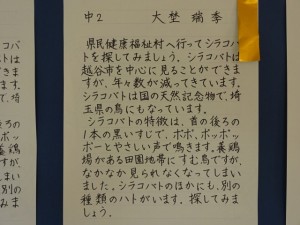 中2 大埜 瑞季
県民健康福祉村へ行ってシラコバ
トを探してみましょう。シラコバトは
越谷市を中心に見ることができま
すが、年々数が減ってきています。
シラコバトは国の天然記念物で、埼
玉県の鳥にもなっています。
シラコバトの特徴は、首の後ろの
1本の黒いすじで、ポポ、ポッポッ
ポーとやさしい声で鳴きます。養鶏
場がある田園地帯にすむ鳥ですが、
なかなか見られなくなってしまい
ました。シラコバトのほかにも、別の
種類のハトがいます。探してみま
しょう。